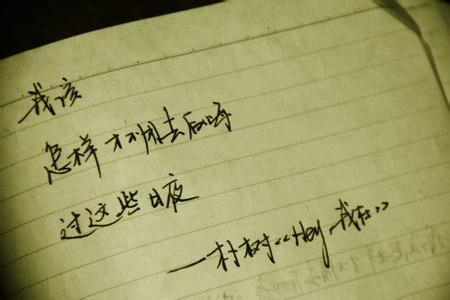 我该
怎样 才不用去后悔
过这些日夜
—朴树《Hey,我在》